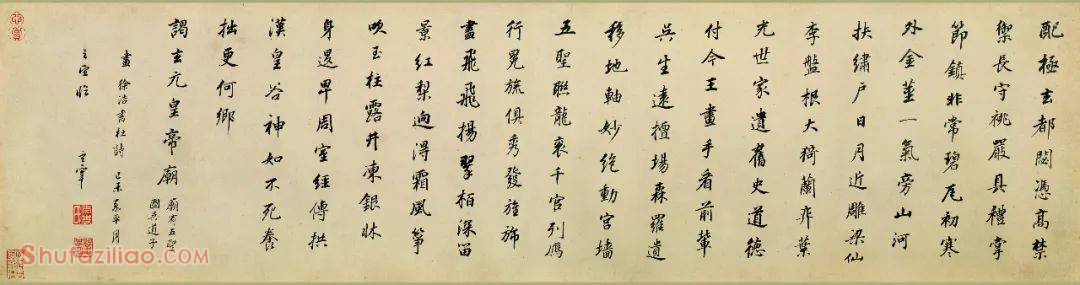 配極玄都閟憑高禁
禦長守祧嚴具禮掌
節鎮非常碧瓦初寒
外金莖一氣旁山河
扶繡戶日月近雕梁仙
李盤根大猗蘭奕葉
光世家遺舊史道德
付今王畫手看前輩
吳生遠擅場森羅遺
移地軸妙絕動宮墻
五聖聯龍衮千官列鴈
行冕旒俱秀發旌旆
盡飛飛揚翠柏深留
景紅梨迥得霜風箏
吹玉柱露井凍銀牀
身退卑周室經傳拱
漢皇谷神如不死養
拙更何鄉
謁玄元皇帝廟
廟有五聖
圖吳道子
畫 徐浩書杜詩 己未嘉平月
玄宰
玄宰臨
Shufaziliao.com